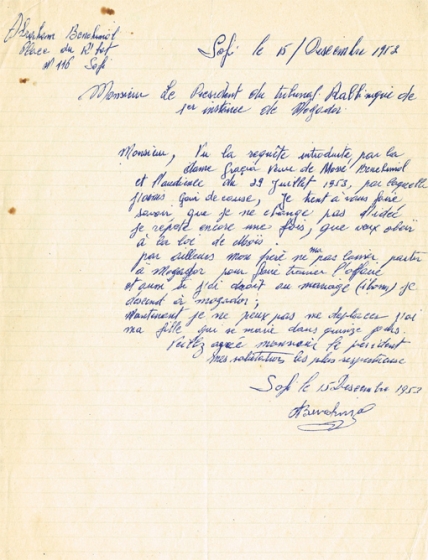 Benchimol
Place du R'bat
N° 116 Safi
Safi le 15/Décembre 1953
Monsieur Le Président du tribunal Rabbinique de
1er instance de Mogador
Monsieur, Vu la requête introduite par la
dame Veuve de Benchimol
et l'audience du 29 Juillet 1953, par laquelle
gain de cause, Je tient à vous faire
savoir, que je ne change pas d'idée
je répète encore une fois, que
à la loi de
par ailleurs mon frère ne ma laisser partir
à Mogador pour faire l'affaire
et aussi si j'ai droit au mariage je
descend à mogador,
Maintenant je ne peux pas me déplacer j'ai
ma fille qui se marie dans quinze jours.
Veillez agréé monsieur le président
mes salutations les plus respectueuse
Safi le 15 Decembre 1953